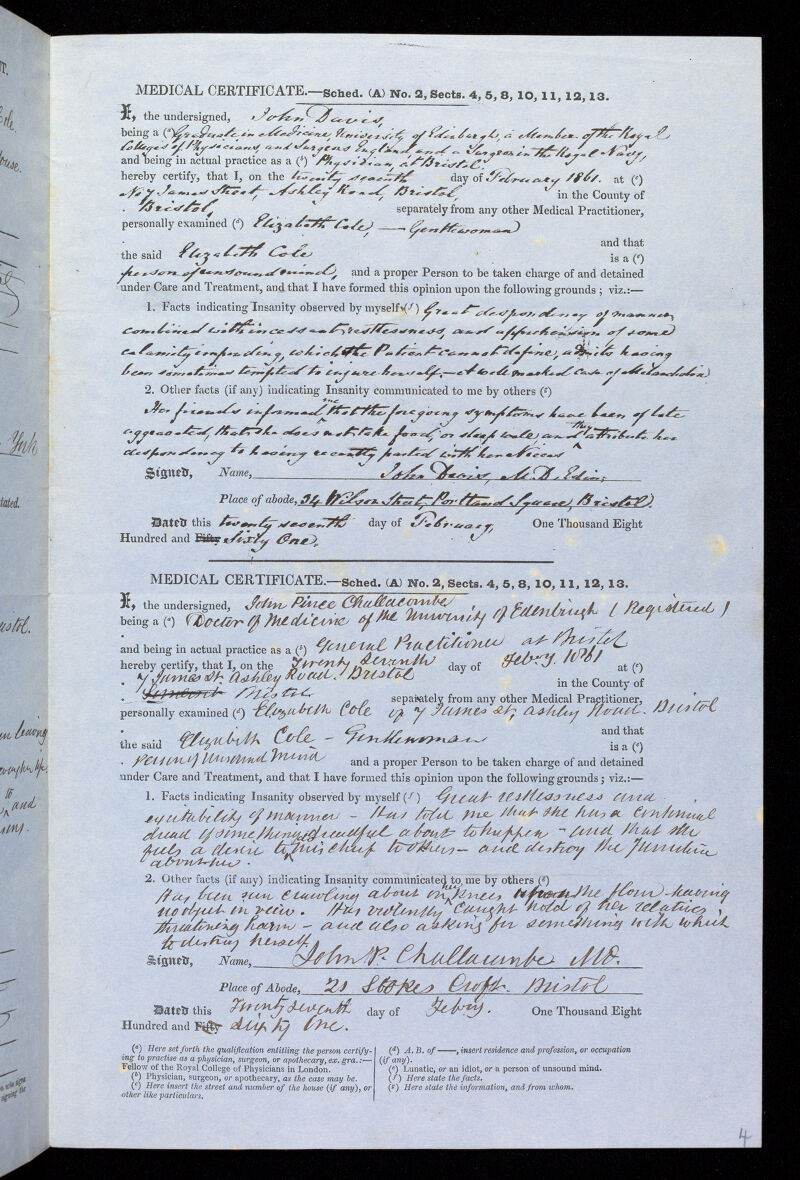 MEDICAL CERTIFICATE.—Sched. (A) No. 2, Sects. 4, 5, 8, 10, 11, 12, 13.
I, the undersigned, John Davis,
being a (a) Graduate in Medicine, University of Edinburgh, a Member of the Royal
Colleges of Physicians, and Surgeons England and a Surgeon in the Royal Navy,
and being in actual practice as a (b) Physician, at Bristol
hereby certify, that I, on the twenty seventh day of February 1861. at (c)
No 7 James Street, Ashley Road, Bristol, in the County of
Bristol, separately from any other Medical Practitioner,
personally examined (d) Elizabeth Cole, — Gentlewoman
and that
the said Elizabeth Cole is a (e)
person of unsound mind, and a proper Person to be taken charge of and detained
under Care and Treatment, and that I have formed this opinion upon the following grounds; viz.:—
1. Facts indicating Insanity observed by myself (f) Great despondency of manner,
combined with incessant restlessness, and apprehension of some
calamity impending, which the Patient cannot define, admits having
been sometimes tempted to injure herself. — A well marked case of Melancholia
2. Other facts (if any) indicating Insanity communicated to me by others (g)
Her friends informed me that the foregoing symptoms have been of late
aggravated, that she does not take food, or sleep well, and they attribute her
despondency to having recently parted with her Nieces
Signed, Name, John Davis, M.D. Edin;
Place of abode, 34 Wilson Street, Portland Square, Bristol.
Dated this twenty seventh day of February, One Thousand Eight
Hundred and Fifty Sixty One.
MEDICAL CERTIFICATE.—Sched. (A) No. 2, Sects. 4, 5, 8, 10, 11, 12, 13.
I, the undersigned, John Pince Challacombe
being a (a) Doctor of Medicine of the University of Edenburgh (Registered)
and being in actual practice as a (b) General Practitioner at Bristol
hereby certify, that I, on the Twenty Seventh day of Feb'y. 1861 at (c)
7 James St. Ashley Road. Bristol in the County of
Bristol separately from any other Medical Practitioner,
personally examined (d) Elizabeth Cole of 7 James St, Ashley Road. Bristol
and that
the said Elizabeth Cole – Gentlewoman is a (e)
Person of Unsound Mind and a proper Person to be taken charge of and detained
under Care and Treatment, and that I have formed this opinion upon the following grounds; viz.:—
1. Facts indicating Insanity observed by myself (f) Great restlessness and
excitability of manner – Has told me that she has a continual
dread of something dreadful about to happen – and that she
feels a desire to do mischief to others – and destroy the furniture
about her.
2. Other facts (if any) indicating Insanity communicated to me by others (g)
Has been seen crawling about on her knees upon the floor having
no object in view. Has violently caught hold of her relatives,
threatening harm – and also asking for something with which
to destroy herself
Signed, Name, John P. Challacombe MD.
Place of Abode, 21 Stokes Croft. Bristol
Dated this Twenty Seventh day of Feb'y. One Thousand Eight
Hundred and Fifty Sixty One.
(a) Here set forth the qualification entitling the person certify-
ing to practise as a physician, surgeon, or apothecary, ex. gra.:—
Fellow of the Royal College of Physicians in London.
(b) Physician, surgeon, or apothecary, as the case may be.
(c) Here insert the street and number of the house (if any), or
other like particulars.
(d) A. B. of ——, insert residence and profession, or occupation
(if any).
(e) Lunatic, or an idiot, or a person of unsound mind.
(f) Here state the facts.
(g) Here state the information, and from whom.
4